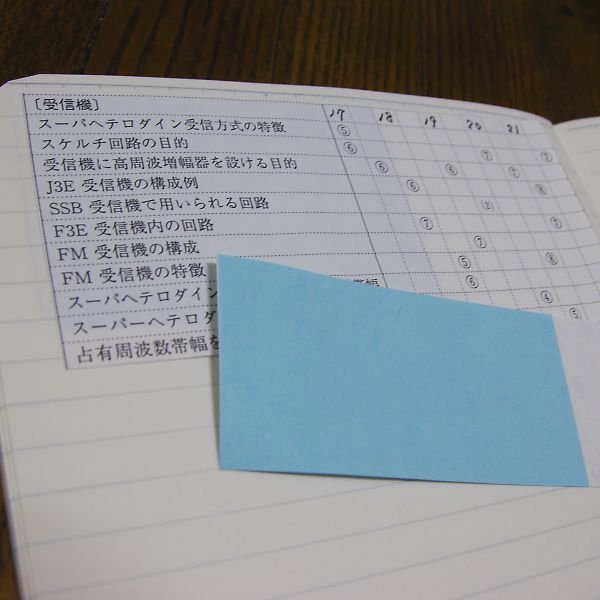 〔受信機〕 17 18 19 20 21
スーパヘテロダイン受信方式の特徴 ⑤
スケルチ回路の目的 ⑥ ⑦ ⑦
受信機に高周波増幅器を設ける目的 ⑥ ⑥ ⑦
J3E 受信機の構成例 ⑥ ⑧
SSB 受信機で用いられる回路 ②
F3E 受信機内の回路 ⑦ ⑦
FM 受信機の構成 ⑦
FM 受信機の特徴 ⑤ ⑧
スーパヘテロダイン 帯幅 ⑥
スーパーヘテロダ ④
占有周波数帯幅を ⑤